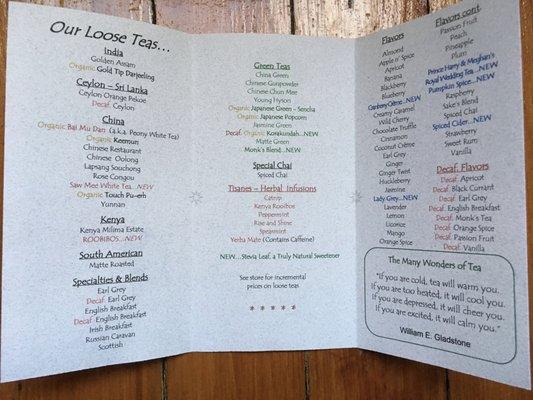 Our Loose Teas...
India
Golden Assam
Organic Gold Tip Darjeeling
Ceylon – Sri Lanka
Ceylon Orange Pekoe
Decaf. Ceylon
China
Organic Bai Mu Dan (a.k.a. Peony White Tea)
Organic Keemun
Chinese Restaurant
Chinese Oolong
Lapsang Souchong
Rose Congou
Saw Mee White Tea...NEW
Organic Touch Pu-erh
Yunnan
Kenya
Kenya Milima Estate
ROOIBOS...NEW
South American
Matte Roasted
Specialties & Blends
Earl Grey
Decaf. Earl Grey
English Breakfast
Decaf. English Breakfast
Irish Breakfast
Russian Caravan
Scottish
Green Teas
China Green
Chinese Gunpowder
Chinese Chun Mee
Young Hyson
Organic Japanese Green - Sencha
Organic Japanese Popcorn
Jasmine Green
Decaf. Organic Korakundah...NEW
Matte Green
Monk's Blend...NEW
Special Chai
Spiced Chai
Tisanes – Herbal Infusions
Catnip
Kenya Rooibos
Peppermint
Rise and Shine
Spearmint
Yerba Mate (Contains Caffeine)
NEW...Stevia Leaf, a Truly Natural Sweetener
See store for incremental
prices on loose teas
* * * * *
Flavors
Almond
Apple n' Spice
Apricot
Banana
Blackberry
Blueberry
Cranberry Crème...NEW
Creamy Caramel
Wild Cherry
Chocolate Truffle
Cinnamon
Coconut Crème
Earl Grey
Ginger
Ginger Twist
Huckleberry
Jasmine
Lady Grey...NEW
Lavender
Lemon
Licorice
Mango
Orange Spice
Flavors cont.
Passion Fruit
Peach
Pineapple
Plum
Prince Harry & Meghan's
Royal Wedding Tea...NEW
Pumpkin Spice...NEW
Raspberry
Sake's Blend
Spiced Apple
Spiced Cider...NEW
Strawberry
Sweet Rum
Vanilla
Decaf. Flavors
Decaf. Apricot
Decaf. Black Currant
Decaf. Earl Grey
Decaf. English Breakfast
Decaf. Monk's Tea
Decaf. Orange Spice
Decaf. Passion Fruit
Decaf. Vanilla
The Many Wonders of Tea
"If you are cold, tea will warm you.
If you are too heated, it will cool you.
If you are depressed, it will cheer you.
If you are excited, it will calm you."
William E. Gladstone